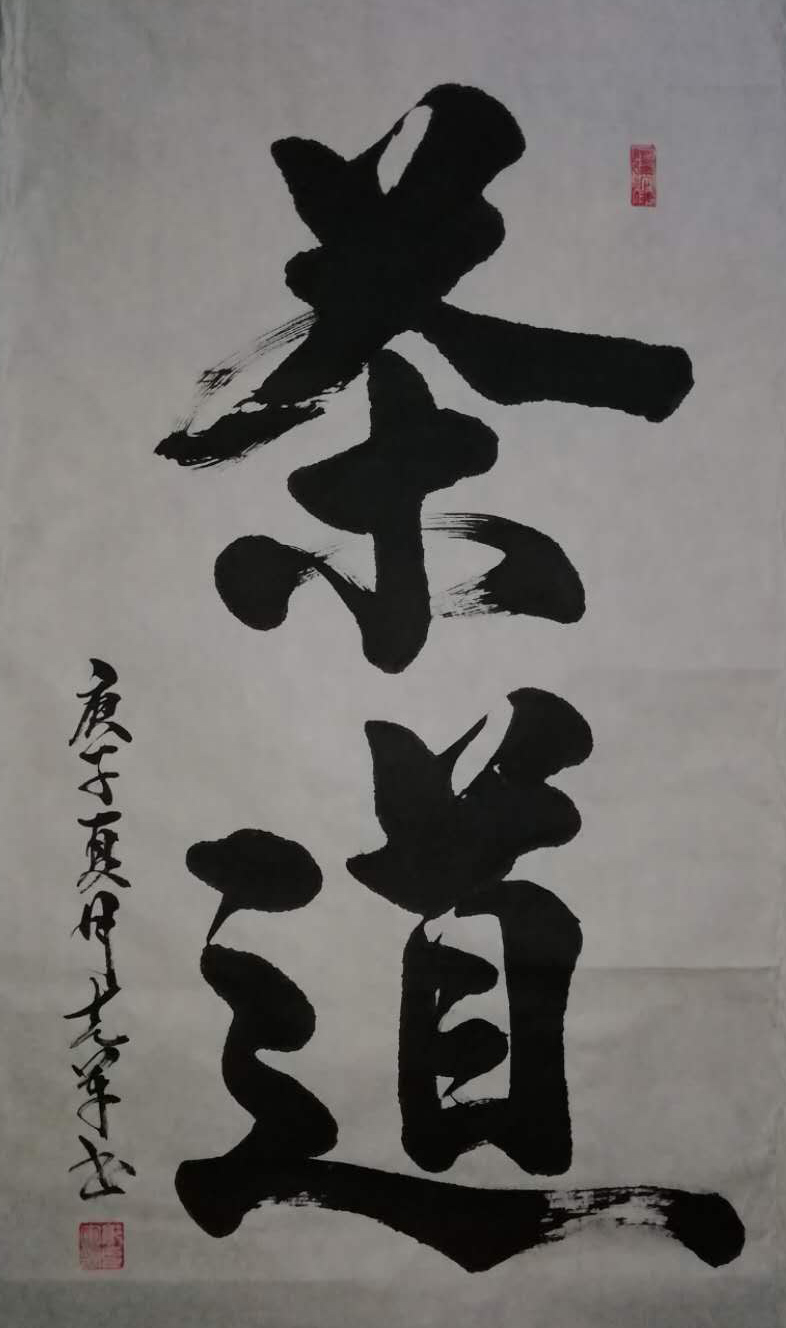 茶道
庚子夏月志军书